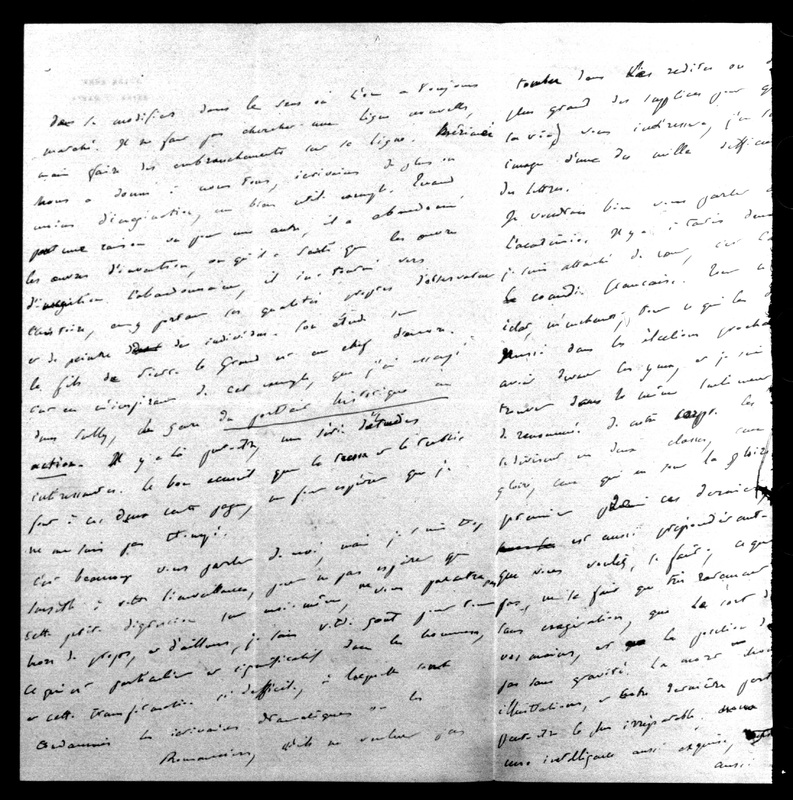 se modifier dans le sens où l'on a toujours
marché. Il ne faut pas chercher une ligne nouvelle,
mais faire des embranchements sur sa ligne. Mérimée
nous a donné à nous tous, écrivains de plus ou
moins d'imagination, un bien utile exemple. Quand
pour une raison ou pour une autre, il a abandonné
les œuvres d'invention, ou qu'il a senti que les œuvres
d'imagination l'abandonnaient, il s'est tourné vers
l'histoire, en y portant ses qualités propres d'observateur
et de peintre des individus. Son étude sur
le fils de Pierre le Grand est un chef d'œuvre.
C'est en m'inspirant de cet exemple, que j'ai essayé
dans Sully, le genre du portrait historique en
action. Il y a là peut-être une série d'études
intéressantes. Le bon accueil que le public
fait à ces deux cents pages, me fait espérer que je
ne me suis pas trompé.
C'est beaucoup vous parler de moi, mais je suis trop
sensible à votre bienveillance, pour ne pas espérer que
cette petite digression sur moi-même, ne vous paraîtra pas
hors de propos, et d'ailleurs, je sais votre goût pour tout
ce qui est particulier et significatif dans les hommes,
et cette transformation si difficile, à laquelle sont
condamnés les écrivains dramatiques ou les
Romanciers, s'ils ne veulent pas
tomber dans les redites ou
plus grand des supplices pour
la vie) vous intéressera,
image d'une des mille difficultés
des lettres.
Je voudrais bien vous parler
l'académie. Il y a
je suis attaché de cœur, c'est
la comédie française. Pour
idées m'enchantent, pour ce qui
aussi dans les élections
avoir devant les yeux, et je suis
trouver dans le même sentiment
de renommée de notre corps. Les
se divisent en deux classes, ceux
gloire, ceux qui en sont la gloire
premier parmi ces derniers,
est aussi prépondérant
que vous voulez, se fait; ce que
pas, ne se fait que très rarement
sans exagération, que le sort
vos mains, et la position
pas sans gravité. La mort
illustrations, et notre dernière perte
peut-être la plus irréparable.
une intelligence aussi exquise,
aussi